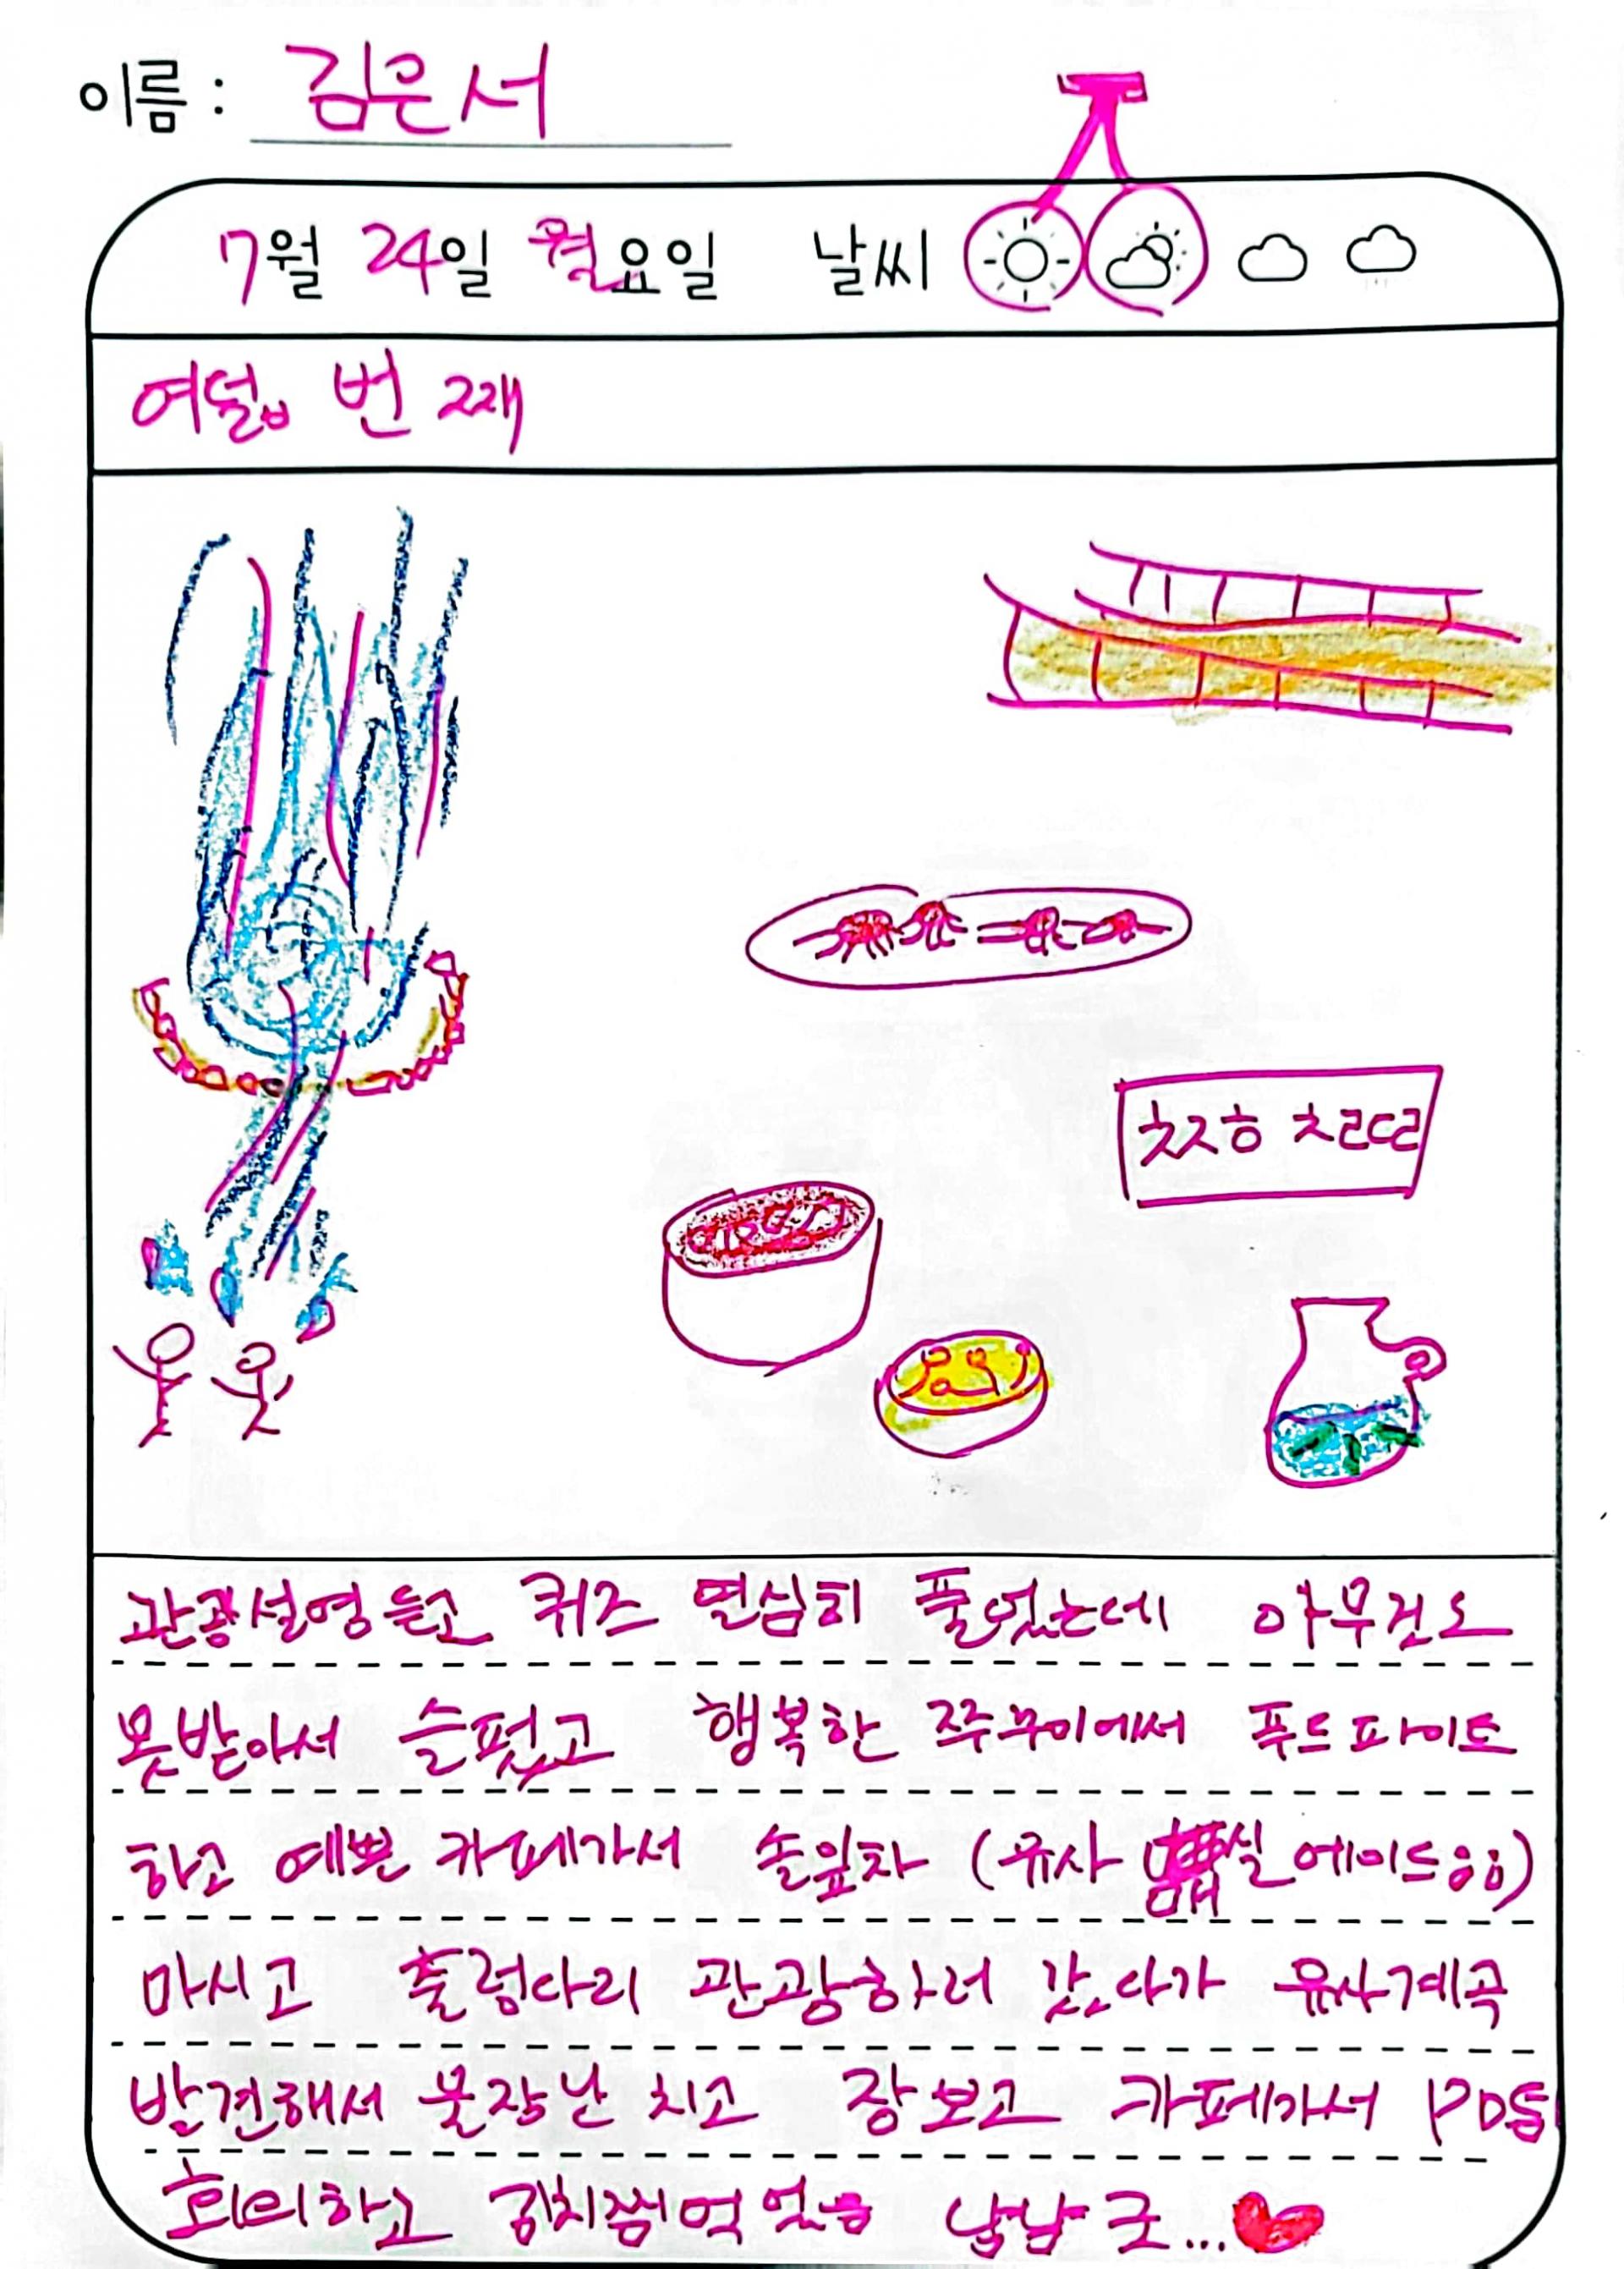 이름 : 김은서
7월 24일 월요일 날씨
여덟 번 째
ㅊㅈㅎ ㅊㄹㄸㄹ
관광설명듣고 퀴즈 열심히 풀었는데 아무것도
못받아서 슬펐고 행복한 쭈꾸미에서 푸드파이트
하고 예쁜 카페가서 솔잎차 (유사 매실에이드ㅎㅎ)
마시고 출렁다리 관광하러 갔다가 유사계곡
발견해서 물장난 치고 장보고 카페가서
회의하고 김치찜먹었슴 냠냠 굿...